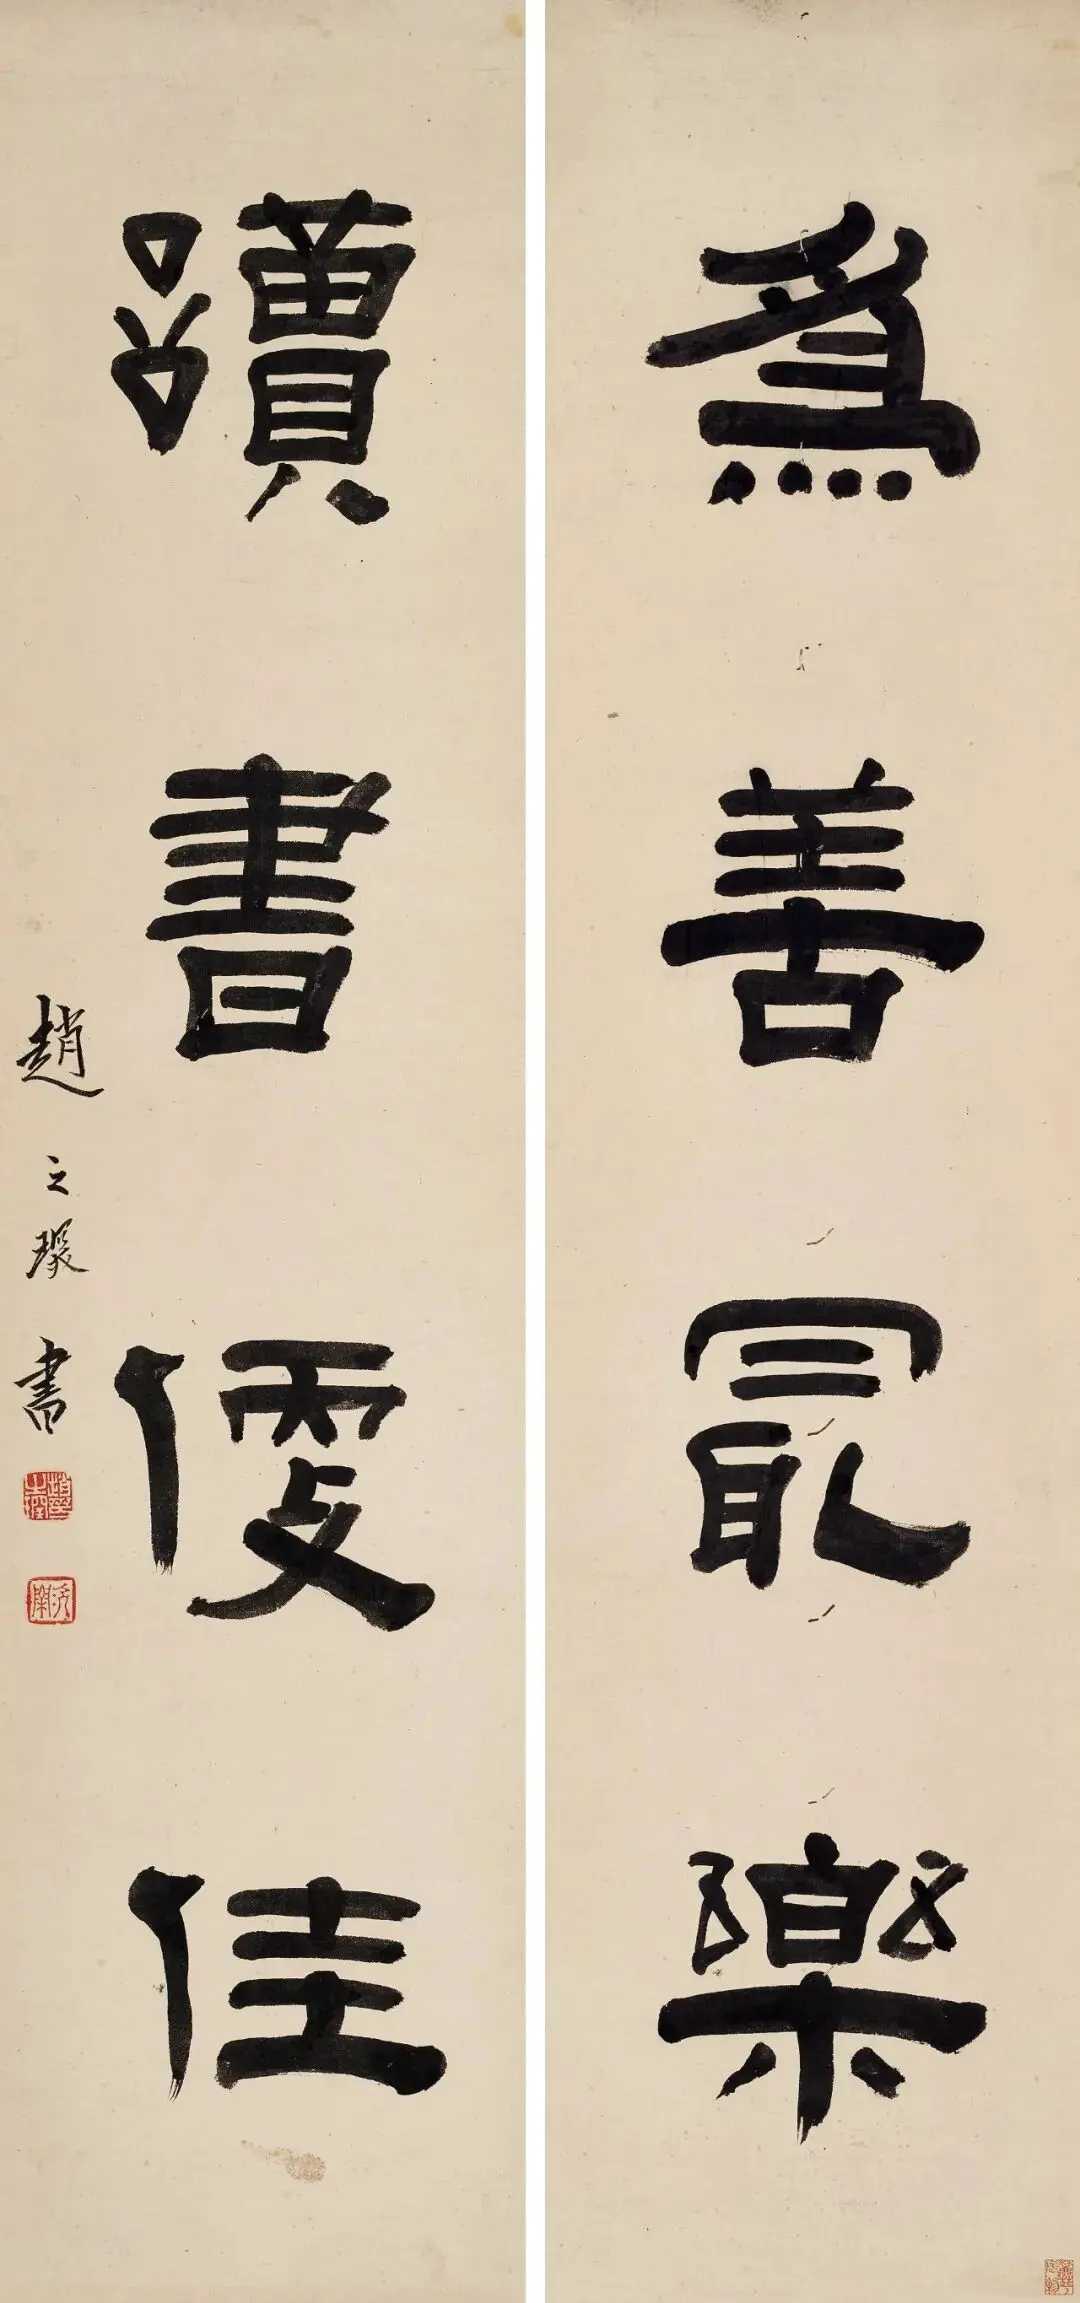 爲善㝡樂
讀書便佳
趙之琛書